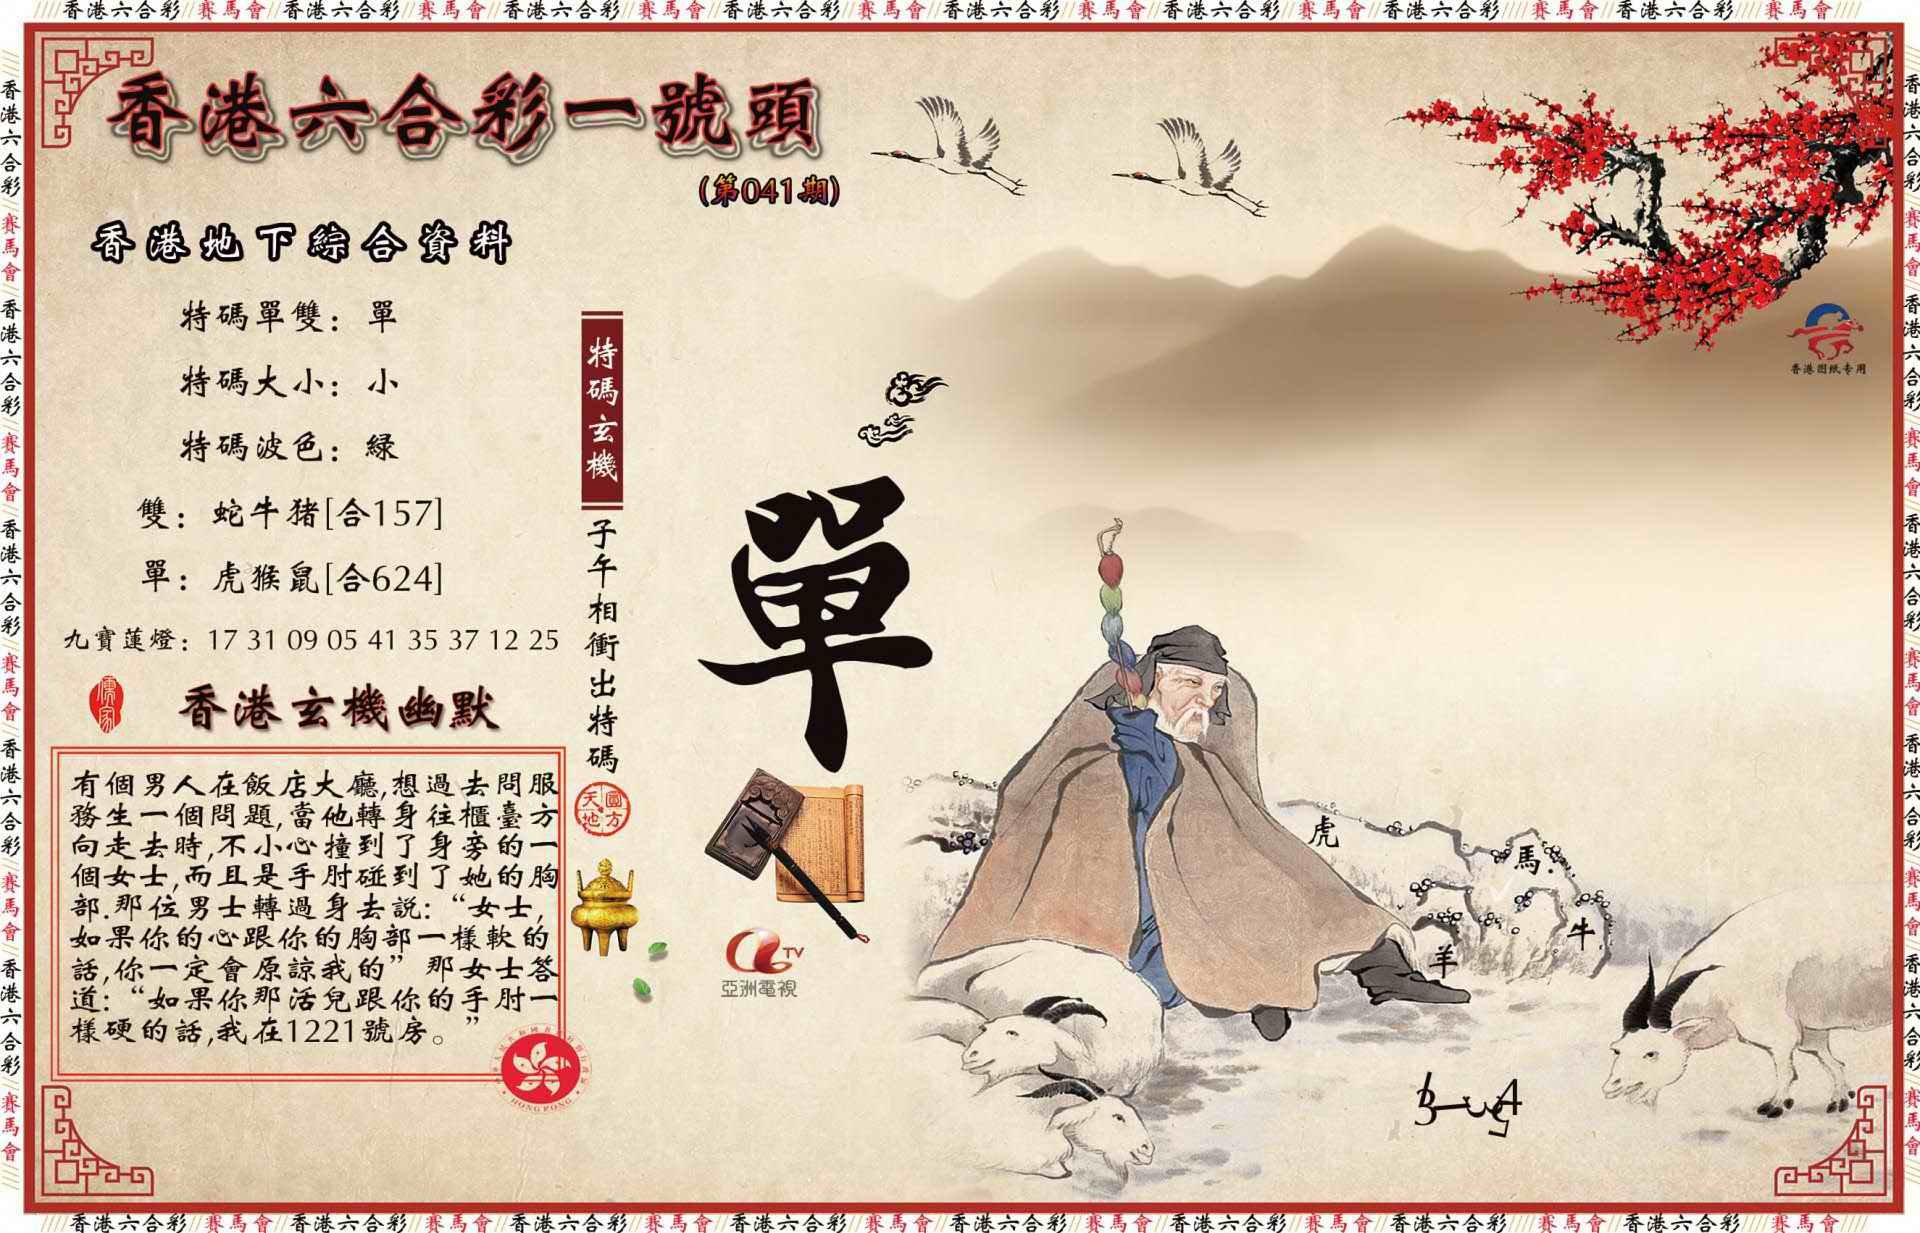 香港六合彩 賽馬會 香港六合彩 賽馬會 香港六合彩 賽馬會 香港六合彩 賽馬會 香港六合彩 賽馬會 香港六合彩 賽馬會 香港六合彩 賽馬會 香港六合彩 賽馬會
香港六合彩一號頭
(第041期)
香港地下綜合資料
特碼單雙：單
特碼大小：小
特碼波色：緑
雙：蛇牛猪[合157]
單：虎猴鼠[合624]
九寶蓮燈：17 31 09 05 41 35 37 12 25
香港玄機幽默
儒家
有個男人在飯店大廳,想過去問服
務生一個問題,當他轉身往櫃臺方
向走去時,不小心撞到了身旁的一
個女士,而且是手肘碰到了她的胸
部.那位男士轉過身去説:“女士,
如果你的心跟你的胸部一樣軟的
話,你一定會原諒我的”那女士答
道:“如果你那活兒跟你的手肘一
樣硬的話,我在1221號房。”
HONG KONG
特碼玄機
子午相衝出特碼
天地
圓方
單
TV
亞洲電視
香港图纸专用
虎
馬
牛
羊
香港六合彩 賽馬會 香港六合彩 賽馬會 香港六合彩 賽馬會 香港六合彩 賽馬會 香港六合彩 賽馬會
香港六合彩 賽馬會 香港六合彩 賽馬會 香港六合彩 賽馬會 香港六合彩 賽馬會 香港六合彩 賽馬會
香港六合彩 賽馬會 香港六合彩 賽馬會 香港六合彩 賽馬會 香港六合彩 賽馬會 香港六合彩 賽馬會 香港六合彩 賽馬會 香港六合彩 賽馬會 香港六合彩 賽馬會